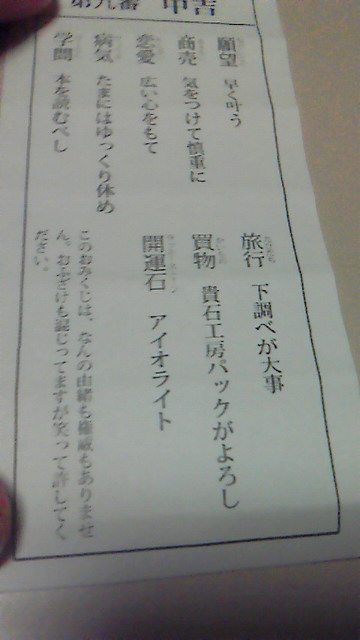 第九番 中吉
願望 早く叶う
商売 気をつけて慎重に
恋愛 広い心をもて
病気 たまにはゆっくり休め
学問 本を読むべし
旅行 下調べが大事
買物 貴石工房パックがよろし
開運石 アイオライト
このおみくじは、なんの由緒も権威もありませ
ん。おふざけも混じってますが笑って許してく
ださい。